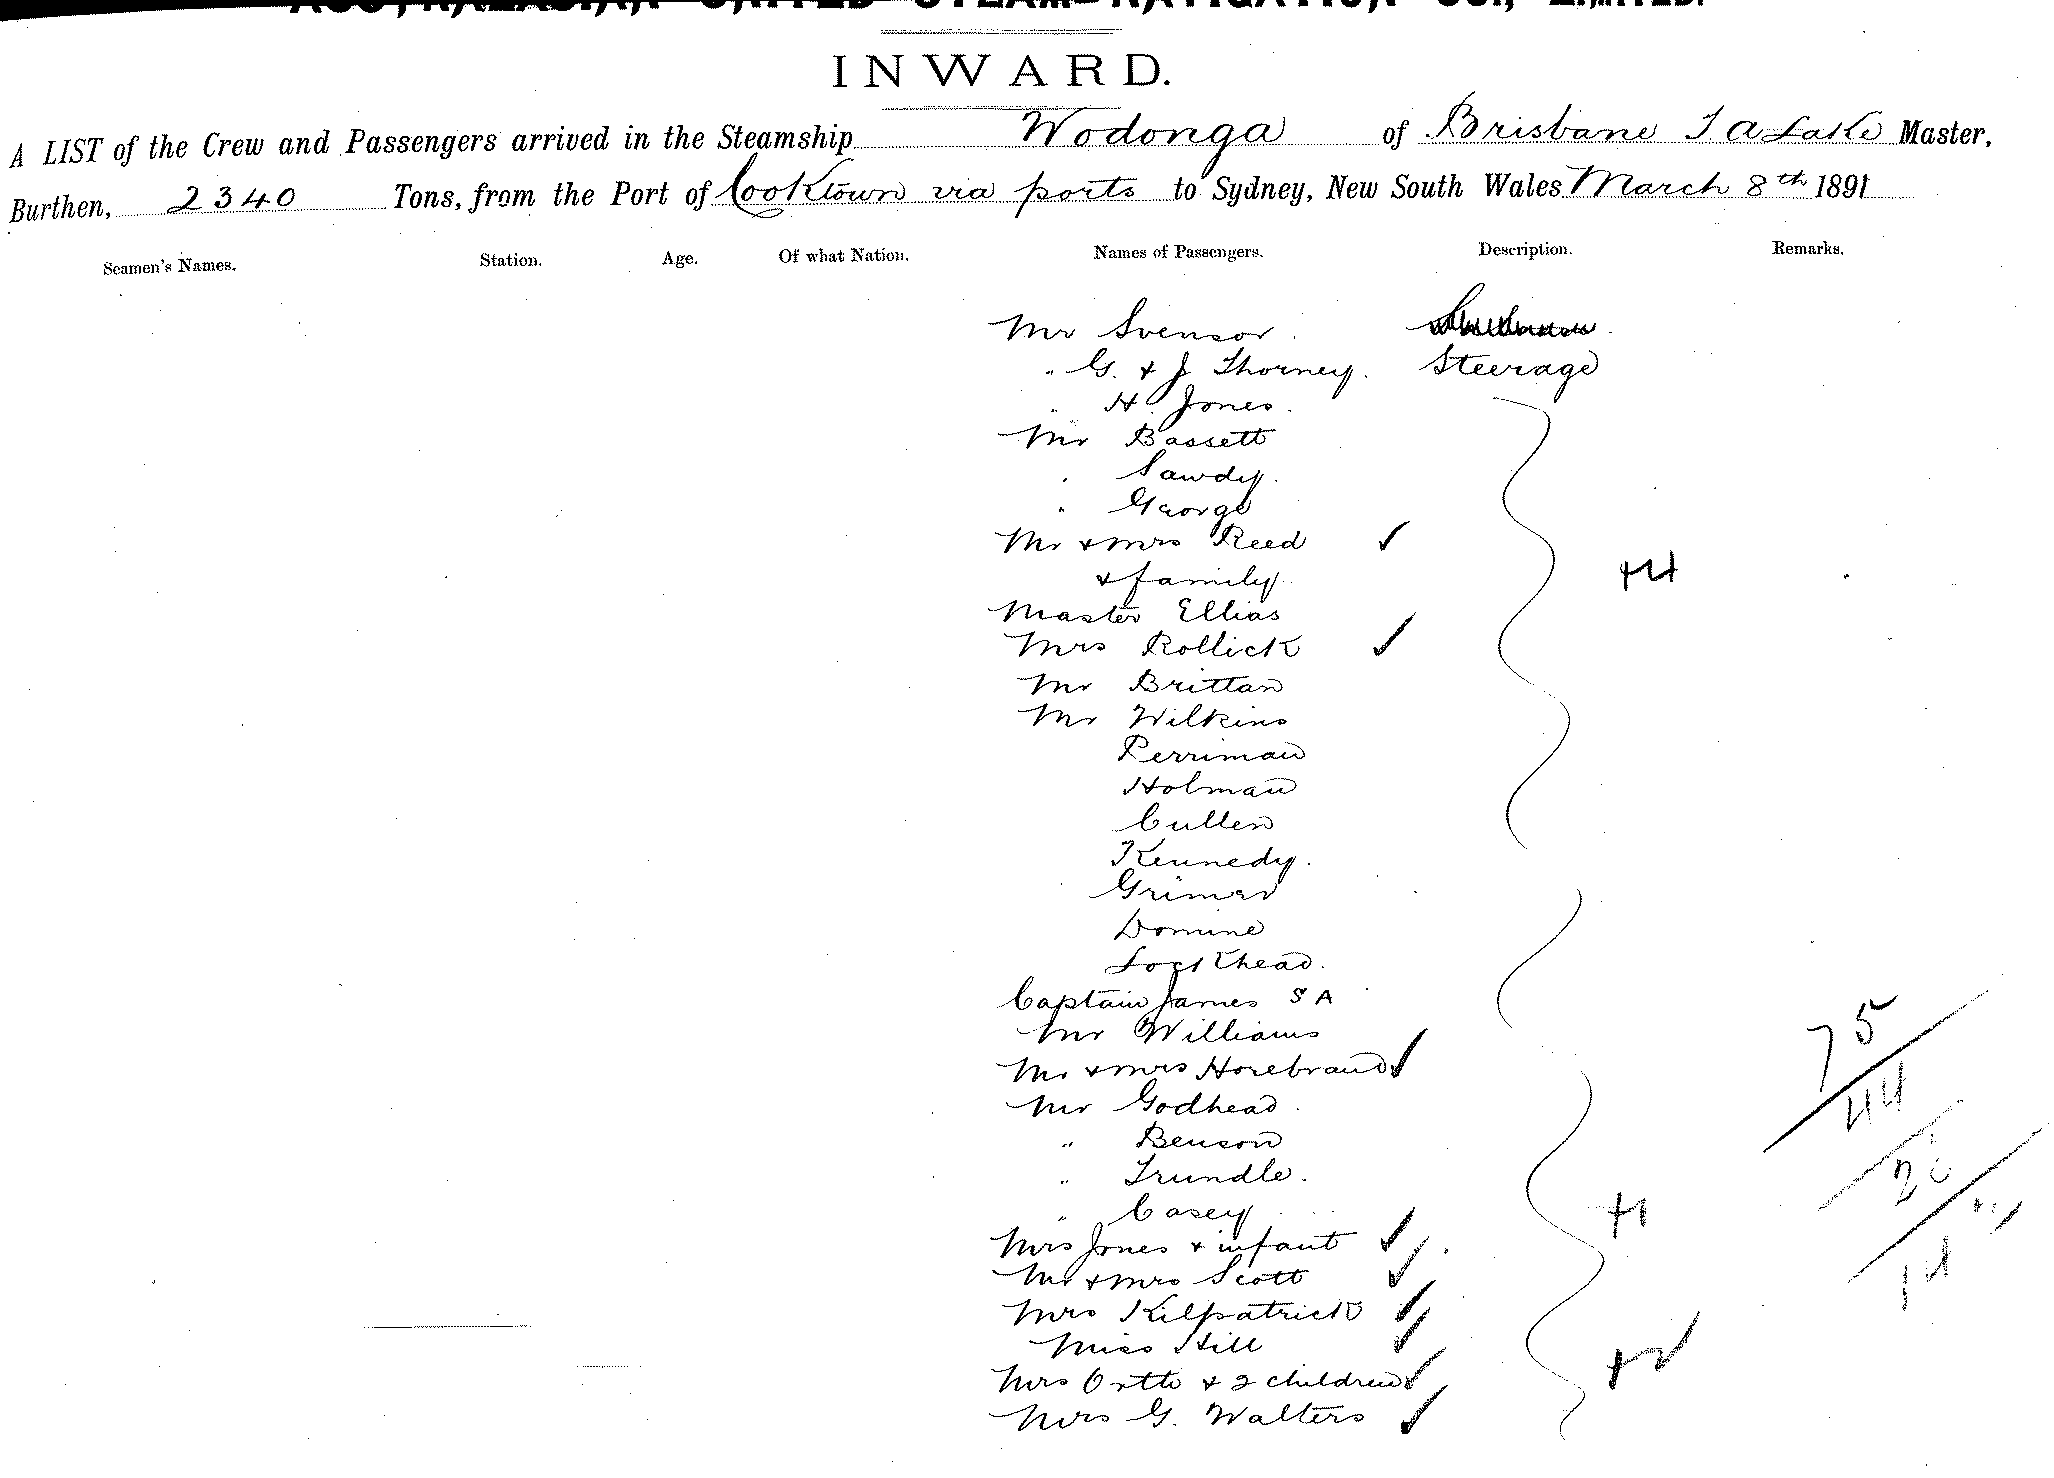 AUSTRALASIAN UNITED STEAM NAVIGATION CO., LIMITED.
INWARD.
A LIST of the Crew and Passengers arrived in the Steamship Wodonga of Brisbane J A Lake Master,
Burthen, 2340 Tons, from the Port of Cooktown via ports to Sydney, New South Wales March 8th 1891
Seamen's Names. Station. Age. Of what Nation. Names of Passengers. Description. Remarks.
Mr Svensor
" G. & J Thorney. Steerage
" H. Jones.
Mr Bassett
" Sawdy.
" George
Mr & Mrs Reed ✓
& family
+4
Master Ellias
Mrs Rollick ✓
Mr Brittan
Mr Wilkins
Perriman
Holman
Cullen
Kennedy.
Grimes
Domine
Lockhead.
Captain James S A
Mr Williams
Mr & Mrs Horebrand ✓
75
Mr Godhead
44
" Benson
" Trundle.
" Casey
+1
Mrs Jones & infant ✓
Mr & Mrs Scott ✓
14
Mrs Kilpatrick ✓
Miss Hill ✓
Mrs Ortto & 2 children ✓
Mrs G. Walters ✓